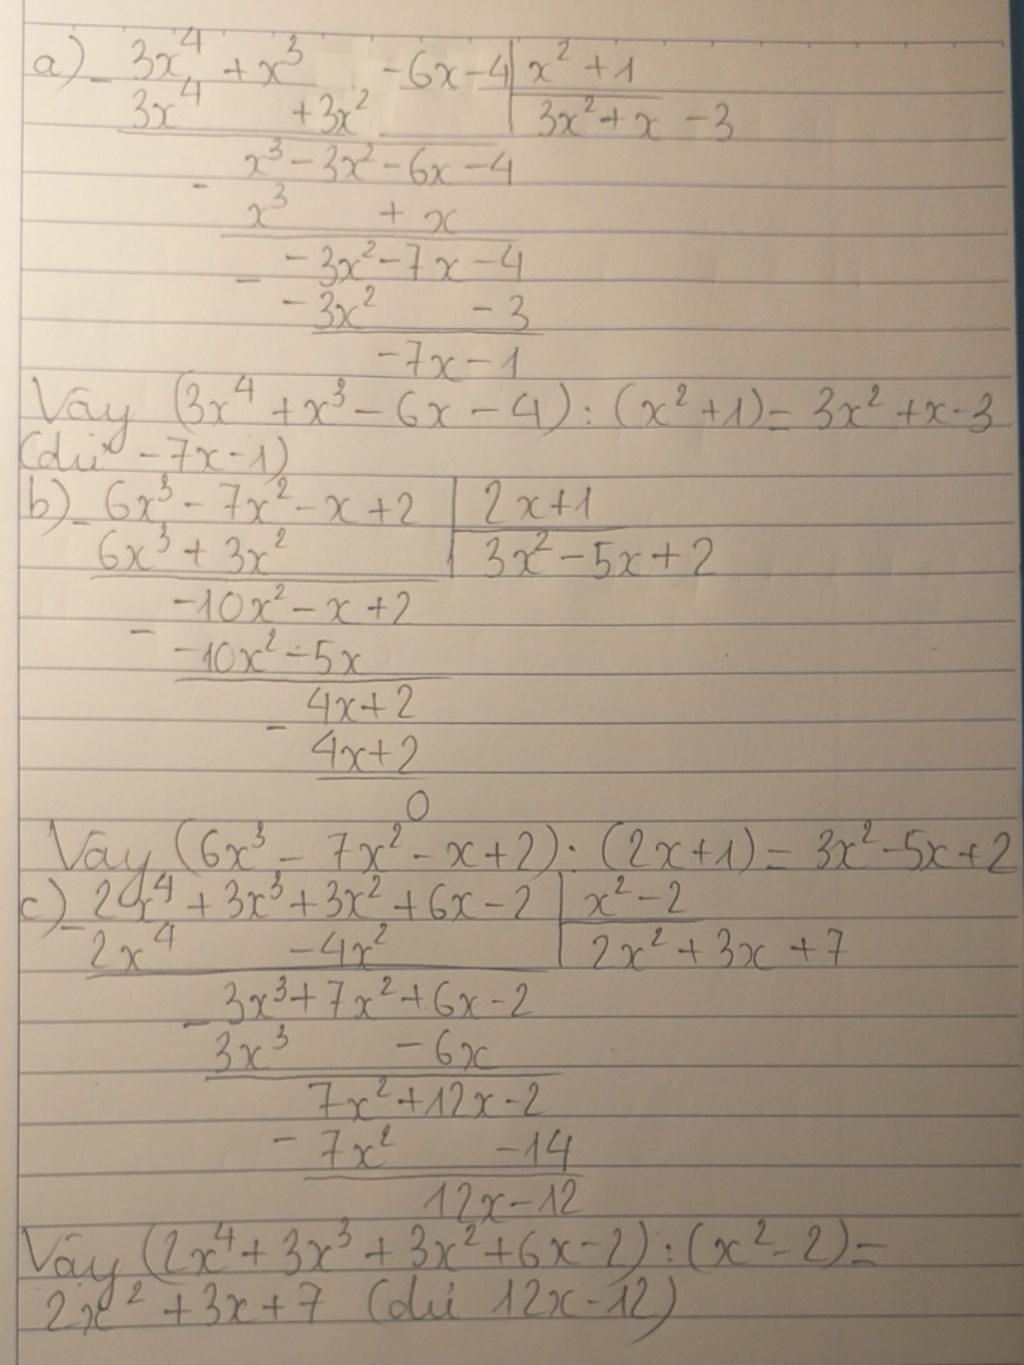 a) - 3x⁴ + x³ - 6x - 4 | x² + 1
3x⁴ + 3x² | 3x² + x - 3
- x³ - 3x² - 6x - 4
x³ + x
- - 3x² - 7x - 4
- 3x² - 3
- 7x - 1
Vây (3x⁴ + x³ - 6x - 4) : (x² + 1) = 3x² + x - 3
(dư - 7x - 1)
b) - 6x³ - 7x² - x + 2 | 2x + 1
6x³ + 3x² | 3x² - 5x + 2
- -10x² - x + 2
-10x² - 5x
- 4x + 2
4x + 2
0
Vây (6x³ - 7x² - x + 2) : (2x + 1) = 3x² - 5x + 2
c) - 2x⁴ + 3x³ + 3x² + 6x - 2 | x² - 2
2x⁴ - 4x² | 2x² + 3x + 7
- 3x³ + 7x² + 6x - 2
3x³ - 6x
7x² + 12x - 2
- 7x² - 14
12x - 12
Vây (2x⁴ + 3x³ + 3x² + 6x - 2) : (x² - 2) =
2x² + 3x + 7 (dư 12x - 12)